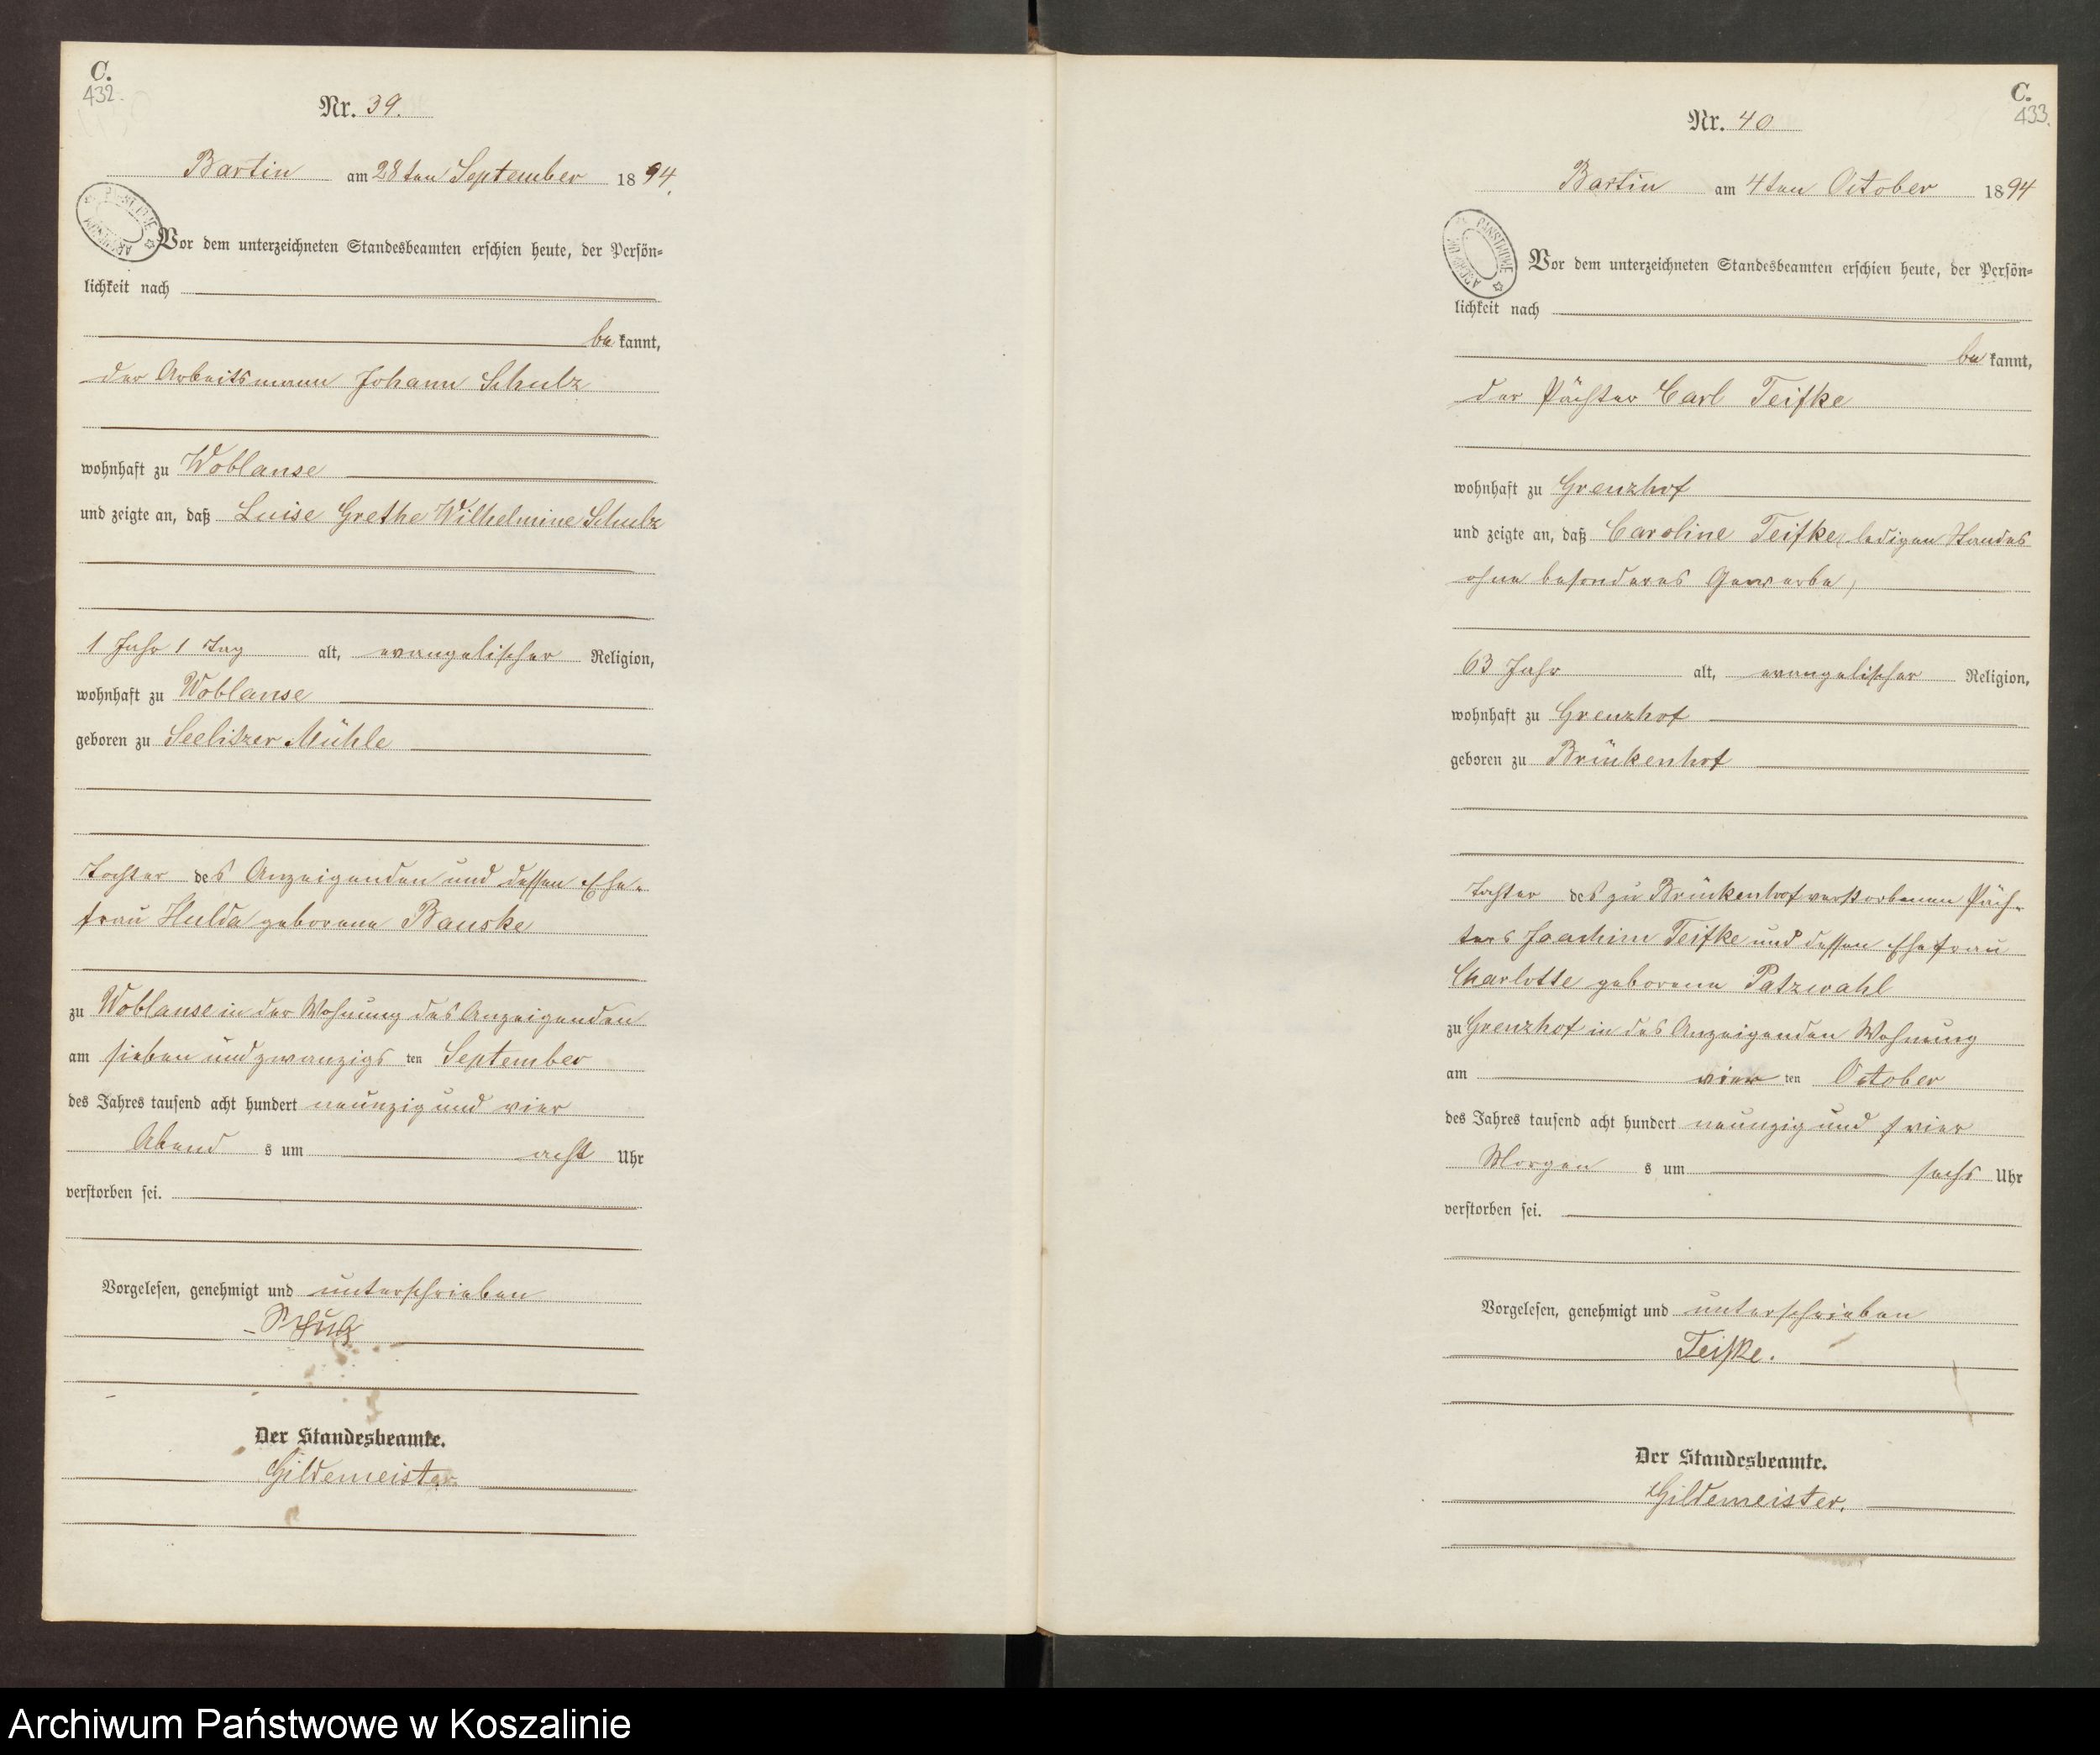 C.
432.
Nr. 39.
Bartin am 28ten September 1894.
Vor dem unterzeichneten Standesbeamten erschien heute, der Persön-
lichkeit nach
bekannt,
der Arbeitsmann Johann Schulz
wohnhaft zu Woblanse
und zeigte an, daß Luise Grethe Wilhelmine Schulz
1 Jahr 1 Tag alt, evangelischer Religion,
wohnhaft zu Woblanse
geboren zu Seelitzer Mühle
Tochter des Anzeigenden und dessen Ehe-
frau Hulda geborene Bauske
zu Woblanse in der Wohnung des Anzeigenden
am sieben und zwanzigsten September
des Jahres tausend acht hundert neunzig und vier
Abends um acht Uhr
verstorben sei.
Vorgelesen, genehmigt und unterschrieben
Schulz
Der Standesbeamte.
Gildemeister.
C.
433.
Nr. 40
Bartin am 4ten October 1894
ARCHIWUM PAŃSTWOWE
Vor dem unterzeichneten Standesbeamten erschien heute, der Persön-
lichkeit nach
bekannt,
der Pächter Carl Teifke
wohnhaft zu Grenzhof
und zeigte an, daß Caroline Teifke, ledigen Standes
ohne besonderes Gewerbe,
63 Jahr alt, evangelischer Religion,
wohnhaft zu Grenzhof
geboren zu Brünkenhof
Tochter des zu Brünkenhof verstorbenen Päch-
ters Joachim Teifke und dessen Ehefrau
Charlotte geborene Patzwahl
zu Grenzhof in des Anzeigenden Wohnung
am vierten October
des Jahres tausend acht hundert neunzig und vier
Morgens um sechs Uhr
verstorben sei.
Vorgelesen, genehmigt und unterschrieben
Teifke.
Der Standesbeamte.
Gildemeister.
Archiwum Państwowe w Koszalinie